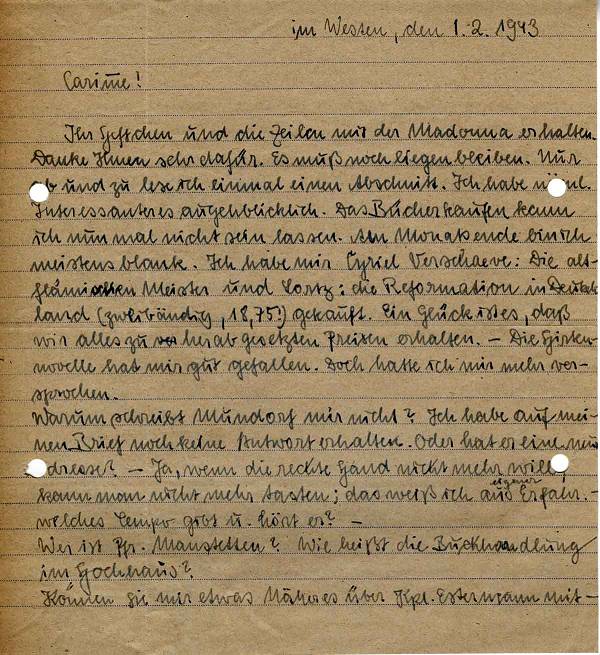 im Westen, den 1.2.1943
Carine!
Ihr Heftchen und die Zeilen mit der Madonna erhalten.
Danke Ihnen sehr dafür. Es muß noch liegen bleiben. Nur
ab und zu lese ich einmal einen Abschnitt. Ich habe näml.
Interessanteres augenblicklich. Das Bücherkaufen kann
ich nun mal nicht sein lassen. Am Monatsende bin ich
meistens blank. Ich habe mir Cyriel Verschaeve: Die alt-
flämischen Meister und Lortz: die Reformation in Deutsch
land (zweibändig, 18,75!) gekauft. Ein Glück ist es, daß
wir alles zu herabgesetzten Preisen erhalten. – Die
novelle hat mir gut gefallen. Doch hatte ich mir mehr ver-
sprochen.
Warum schreibt Mundorf mir nicht? Ich habe auf mei-
nen Brief noch keine Antwort erhalten. Oder hat er eine neue
Adresse? – Ja, wenn die rechte Hand nicht mehr will,
kann man nicht mehr tasten; das weiß ich aus eigener Erfahr. –
welches Tempo gibt u. hört er? –
Wer ist Pfr. Manstetten? Wie heißt die Buchhandlung
im "Hochhaus"?
Können Sie mir etwas Näheres über Kpl. Estermann mit-